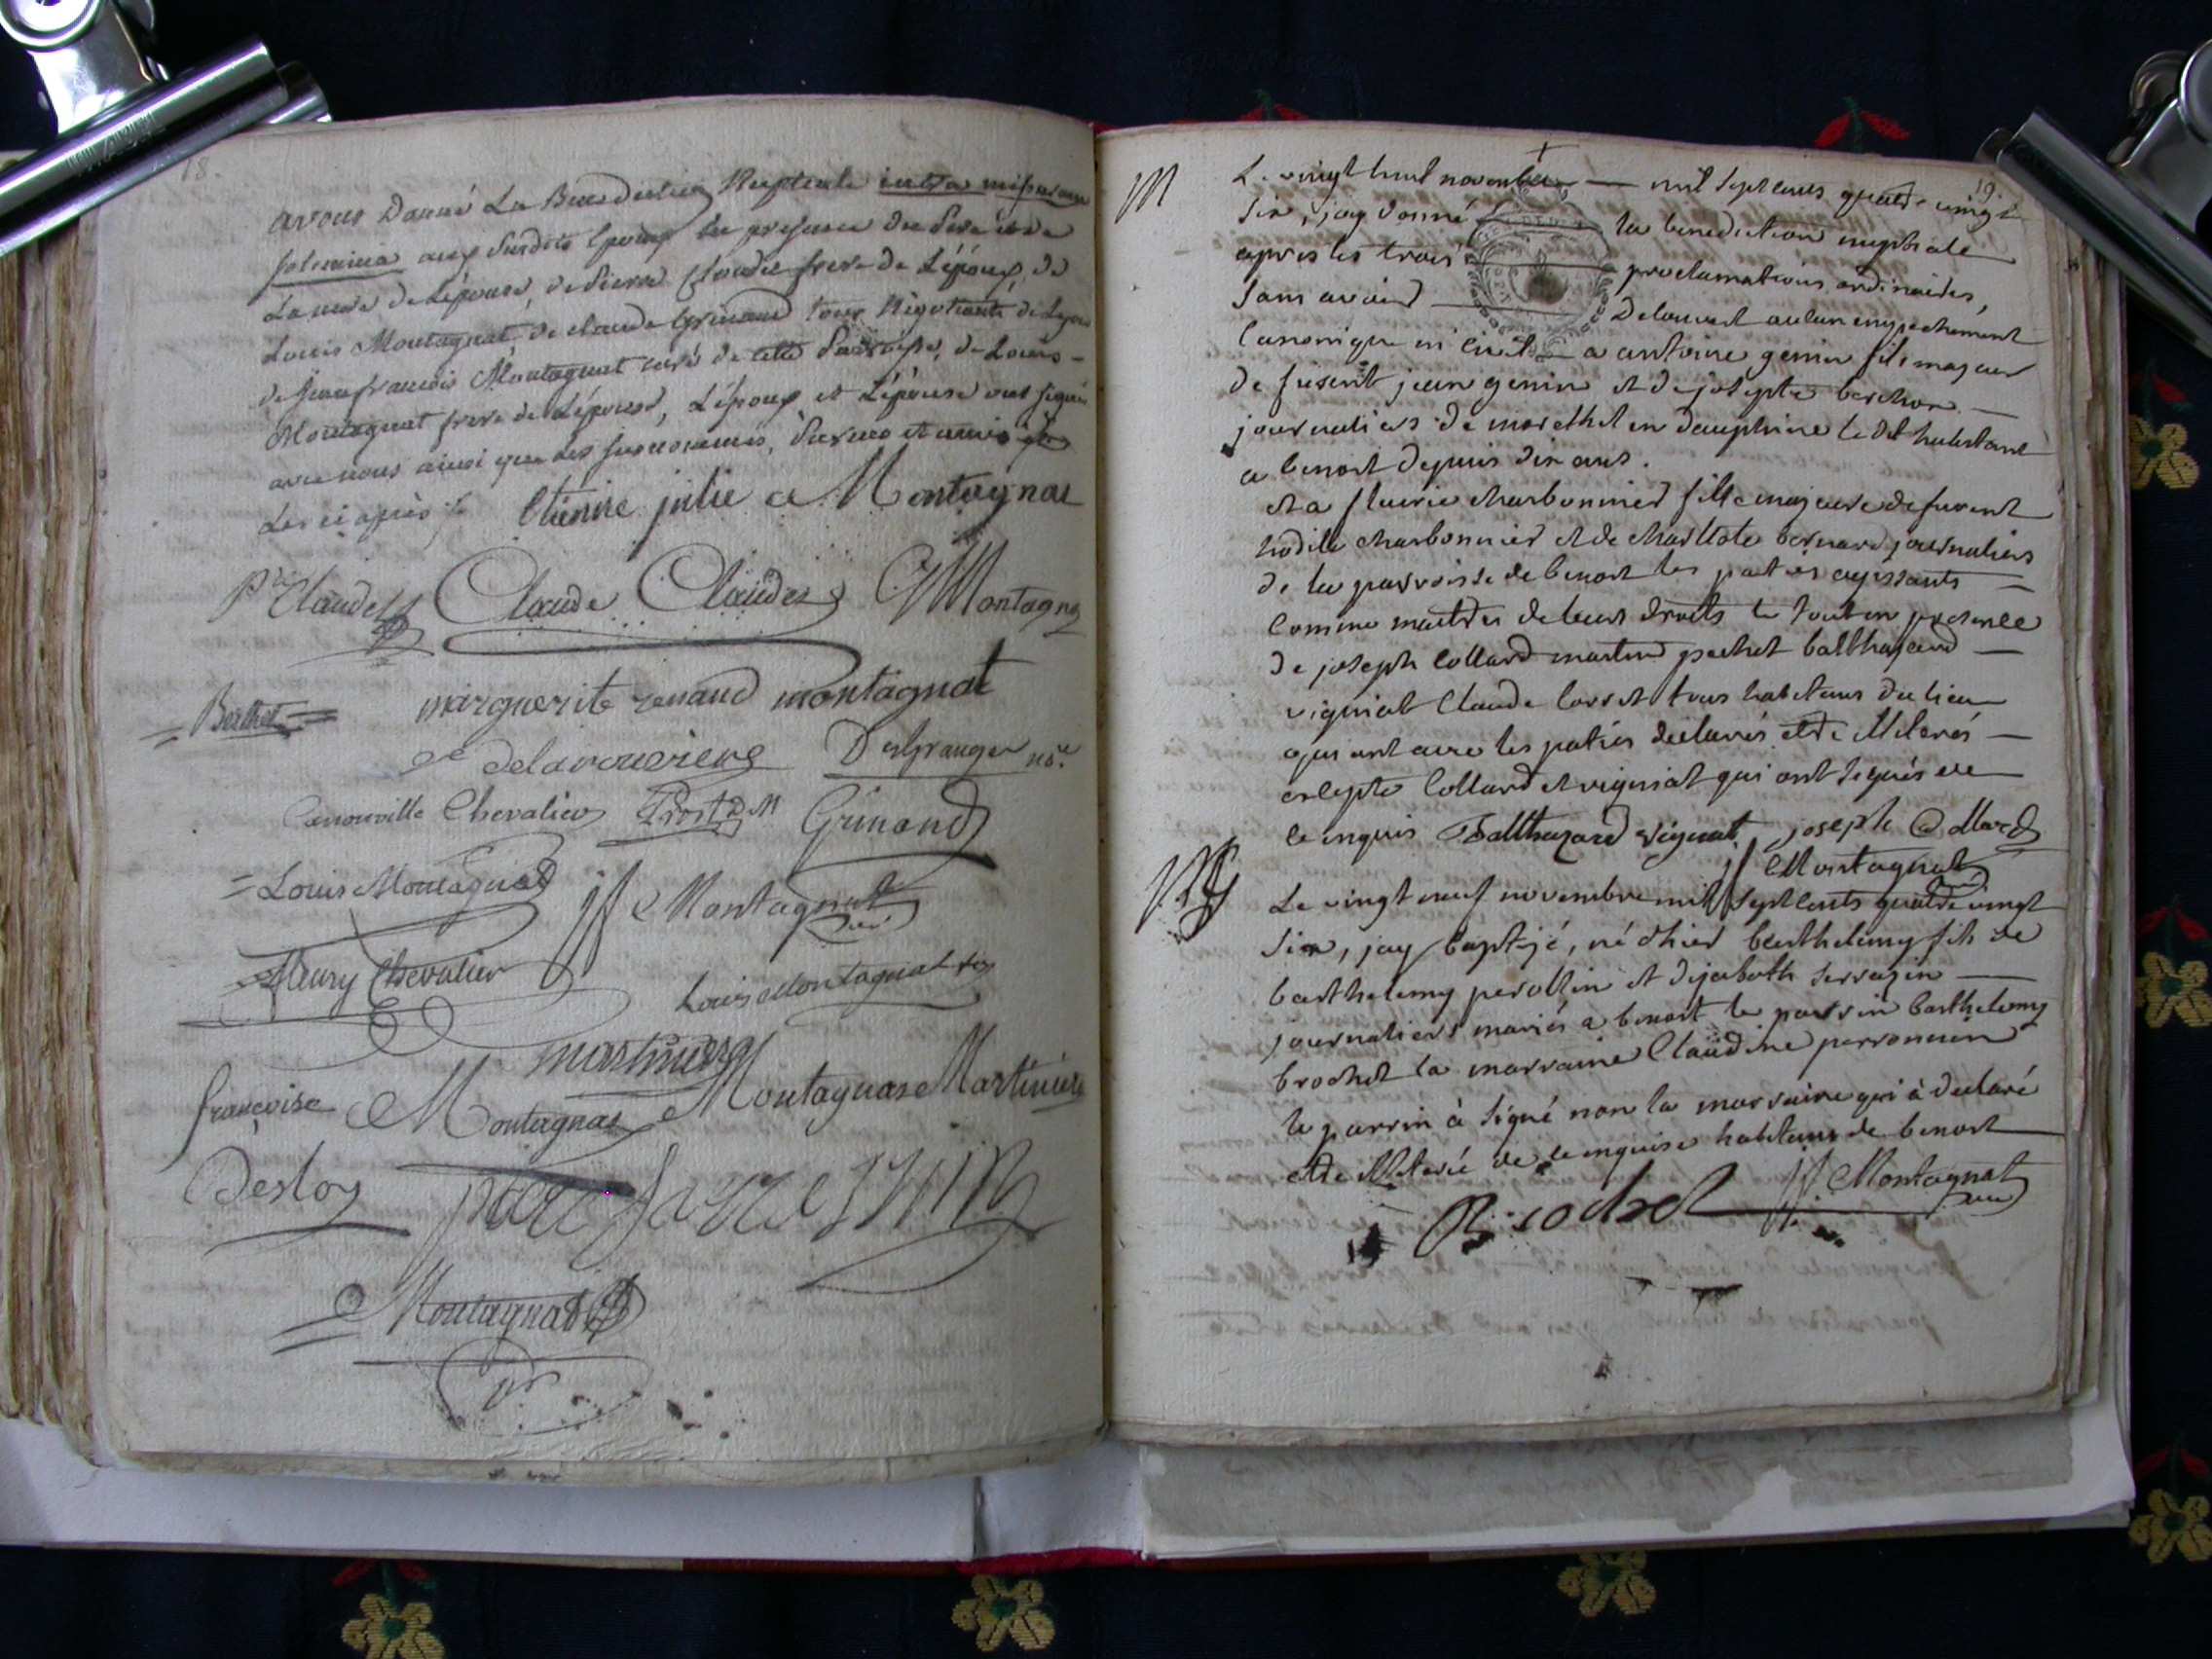 18.
avons Donné La Benediction Nuptiale intra missarum
solemnia aux susdits Epoux en presence du Pere et de
La mere de L'épouse, de Pierre Claudet frere de L'époux, de
Louis Montagnat de claude Grimand tous Négotiants de Lyon
de jean françois Montagnat curé de cette Paroisse, de Louis
Montagnat frere de L'épouse, L'époux et L'épouse ont signé
avec nous ainsi que Les susnommés, Parens et amis
Les ci après
Etienne julie Montagnat
Pre Claudet Claude Claudet Montagnat
Berthet marguerite renaud montagnat
delarouviere Desgranges no.re
Canonville Chevalier Prost DM Grimand
Louis Montagnat jf Montagnat curé
Fleury Chevalier Louis Montagnat
martiniere
françoise Montagnat Montagnat Martiniere
Desloy
Montagnat
19.
M Le vingt huit novembre mil sept cents quatre vingt
six, jay donné la benediction nuptiale
apres les trois proclamations ordinaires,
sans avoir decouvert aucun empechement
canonique ni civil a antoine genin fils majeur
de feu jean genin et de josepte berchon
journaliers de morethel en dauphine le dit habitant
a benost depuis dix ans.
et a fleurie charbonnier fille majeure de
charbonnier et de charllote bernard journaliers
de la parroisse de benost les parties agissants
comme maitres de leurs droits le tout en presence
de joseph collard martin pechet balthazard
vigniat Claude tous habitans du lieu
qui ont avec les parties declarés etre illiterés
excepté collard et vigniat qui ont signés de
ce inquis Balthazard vignat joseph Collard
jf Montagnat curé
Le vingt neuf novembre mil sept cents quatre vingt
six, jay baptizé, né d'hier barthelemy fils de
barthelemy perollin et d'izabeth serrazin
journaliers mariés a benost le parrin barthelemy
brochet la marraine Claudine perronnin
le parrin à signé non la marraine qui à declaré
etre illiterée de ce inquise habitans de benost
Brochet jf Montagnat curé